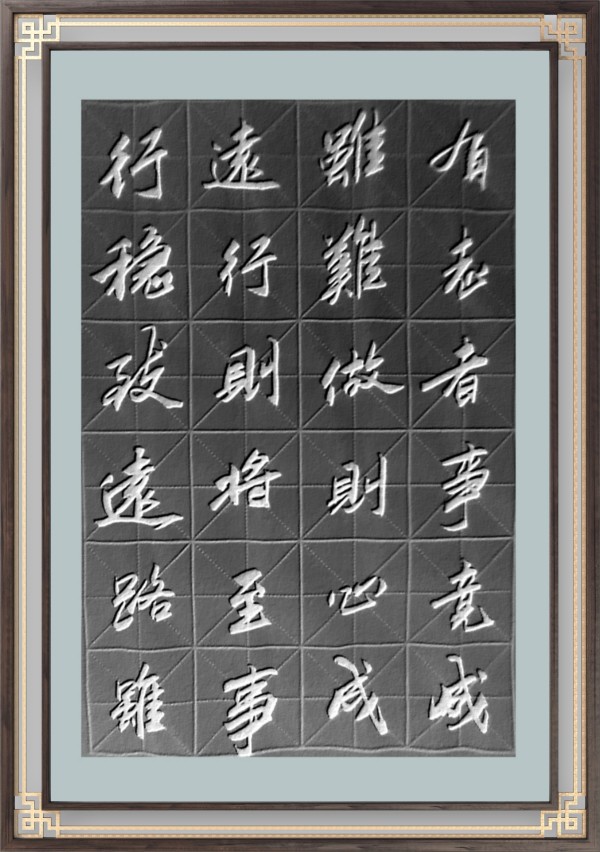 行稳致遠路雖
遠行則将至事
雖難做則必成
有志者事竟成